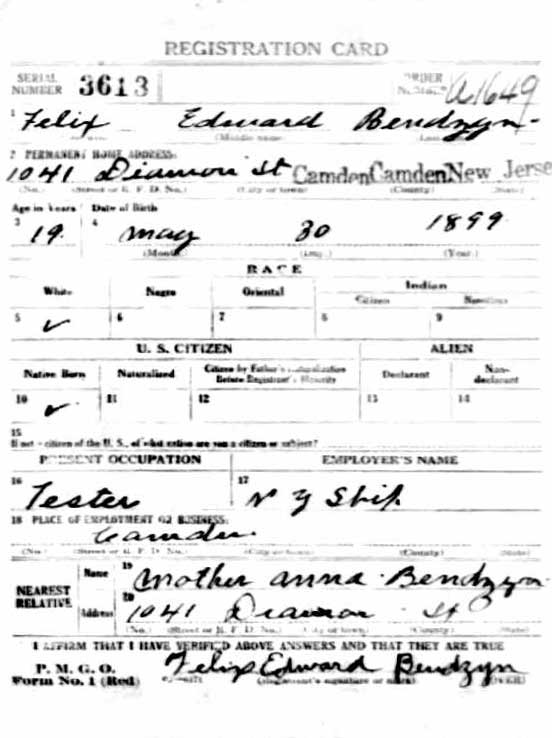 REGISTRATION CARD
SERIAL NUMBER 3613 ORDER NUMBER A1649
1 Felix Edward Bendzyn
(Middle name)
2 PERMANENT HOME ADDRESS:
1041 Diamon St Camden Camden New Jerse
(No.) (Street or R. F. D. No.) (City or town) (County) (State)
Age in Years Date of Birth
3 19 4 May 30 1899
(Month) (Day) (Year)
RACE
White Negro Oriental Indian
Citizen Noncitizen
5 ✓ 6 7 8 9
U. S. CITIZEN ALIEN
Native Born Naturalized Citizen by Father's Naturalization Before Registrant's Majority Declarant Non-declarant
10 ✓ 11 12 13 14
15
If not a citizen of the U. S., of what nation are you a citizen or subject?
PRESENT OCCUPATION EMPLOYER'S NAME
16 Tester 17 N Y Ship
18 PLACE OF EMPLOYMENT OR BUSINESS:
Camden
(No.) (Street or R. F. D. No.) (City or town) (County) (State)
NEAREST RELATIVE Name 19 Mother Anna Bendzyn
Address 20 1041 Diamon St
(No.) (Street or R. F. D. No.) (City or town) (County) (State)
I AFFIRM THAT I HAVE VERIFIED ABOVE ANSWERS AND THAT THEY ARE TRUE
P. M. G. O.
Form No. 1 (Red) Felix Edward Bendzyn
(Registrant's signature or mark) (OVER)